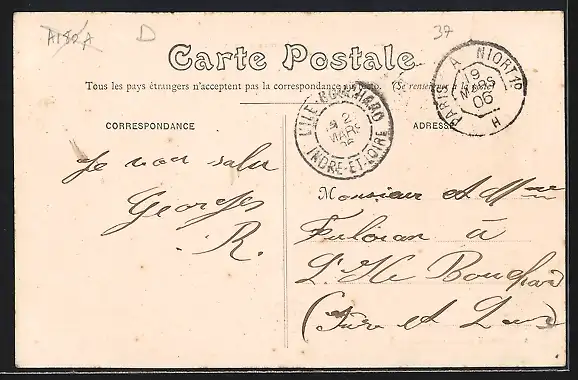 A180A D 37
Carte Postale
Tous les pays étrangers n'acceptent pas la correspondance au recto. (Se renseigner à la poste)
PARIS A NIORT 1º
19
MARS
06
H
L'ILE-BOUCHARD
2
MARS
06
INDRE-ET-LOIRE
CORRESPONDANCE
ADRESSE
Je vous salue
Georges
R.
Monsieur et Mme
à
L'Ile Bouchard
(Indre et Loire)